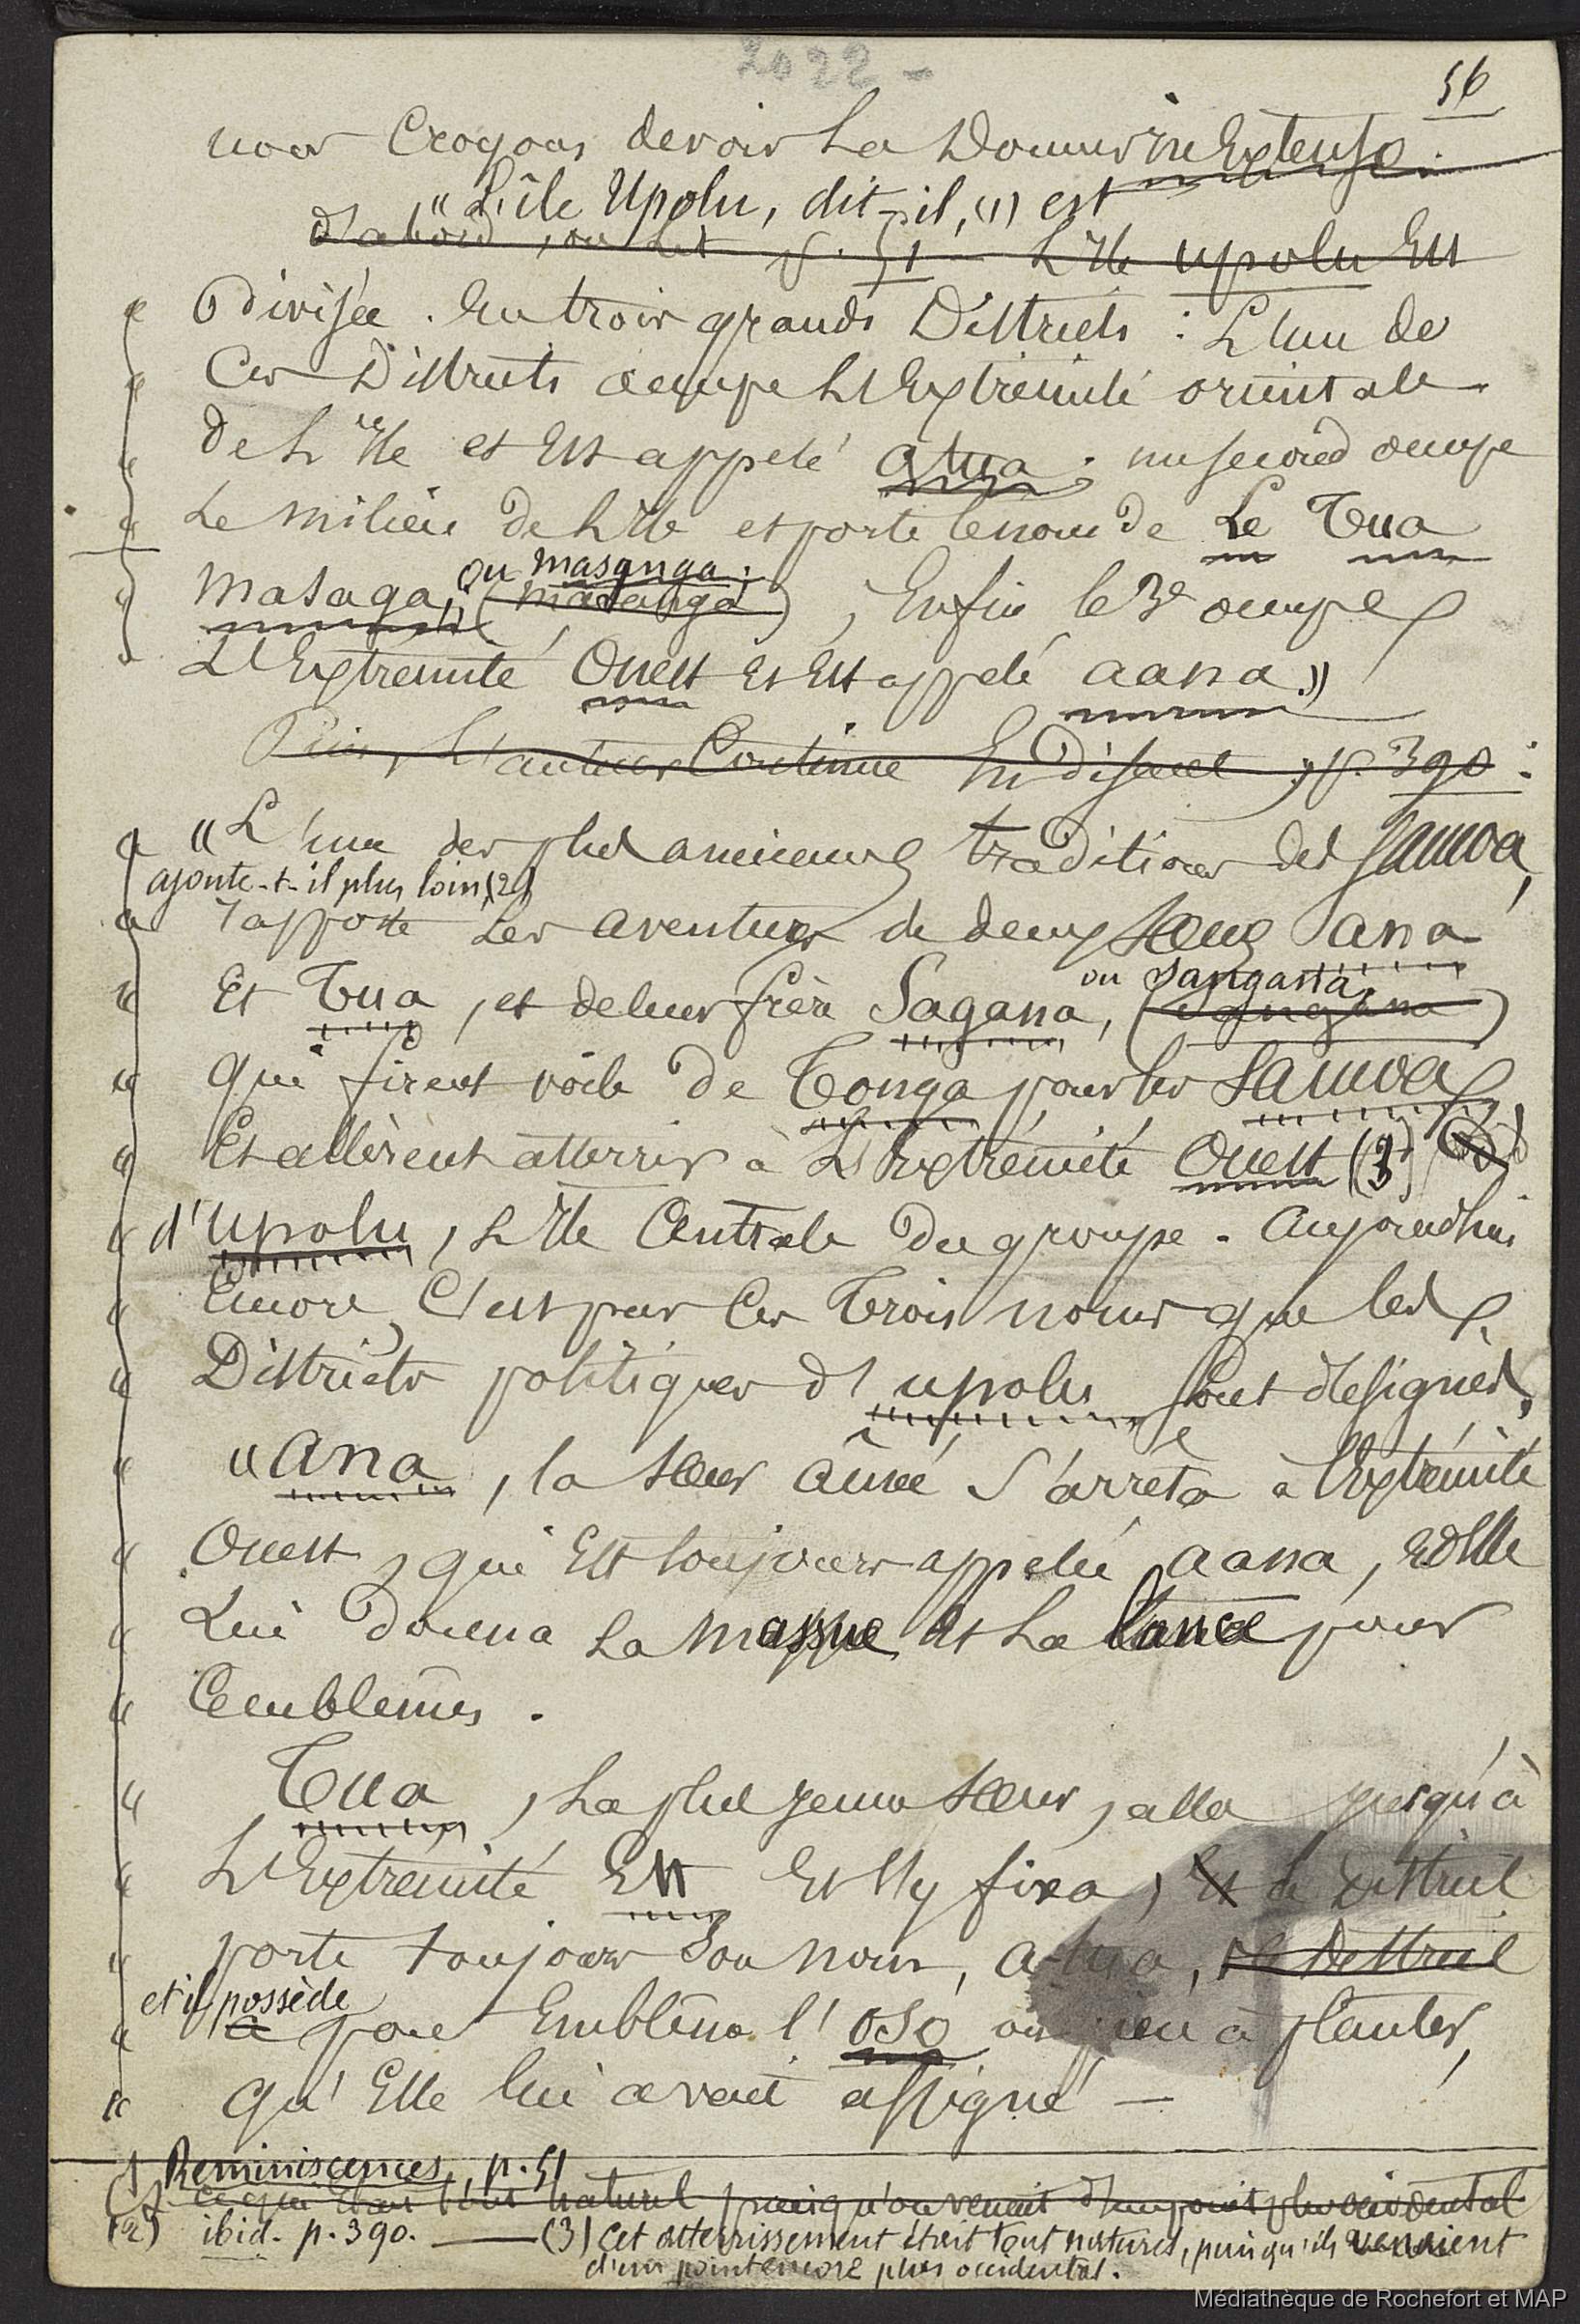 2022 -
56
nous Croyons devoir La Donner in Extenso.
"L'île Upolu, dit-il, (1) est
d'abord, on lit p. 51 - L'Ile upolu Est
divisée. En trois grands Districts : L'un de
Ces Districts occupe L'Extrémité orientale
de L'Ile et Est appelé atua ; un second occupe
Le milieu de L'Ile et porte le nom de Le Tua
ou masanga ;
masaga, (masanga) , Enfin le 3e occupe
L'Extrémité Ouest Et Est appelé aana »
Puis, L'auteur Continue En Disant ; p. 390 :
"L'une des plus anciennes traditions des Samoa,
ajoute-t-il plus loin, (2)
rapporte Les aventures de deux soeurs ana
Et Tua, et de leur frère Sagana, ou Sangana, (Sangana)
qui firent voile de Tonga pour les Samoa
Et allèrent atterrir à L'Extrémité Ouest (3)
d'Upolu, L'Ile Centrale du groupe. Aujourd'hui
Encore, C'est par Ces Trois noms que les
Districts politiques d'upolu sont désignés,
"ana, la soeur ainée s'arrêta à l'Extrémité
Ouest, qui Est toujours appelée aana, Et Elle
Lui donna La massue Et La lance pour
Emblêmes.
Tua, La plus jeune soeur, alla jusqu'à
L'Extrémité Est Et s'y fixa, Et Le District
porte toujours son nom, a-tua, Le District
et il possède
a pour Emblême l'oso ou pieu à planter,
qu'Elle lui avait assigné —
(1) Reminiscences, p. 51
(2 Ce qui était tout naturel puisqu'on venait d'un point plus occidental
(2) ibid. p. 390. — (3) Cet atterrissement était tout naturel, puisqu'ils venaient
d'un point encore plus occidental.
Médiathèque de Rochefort et MAP